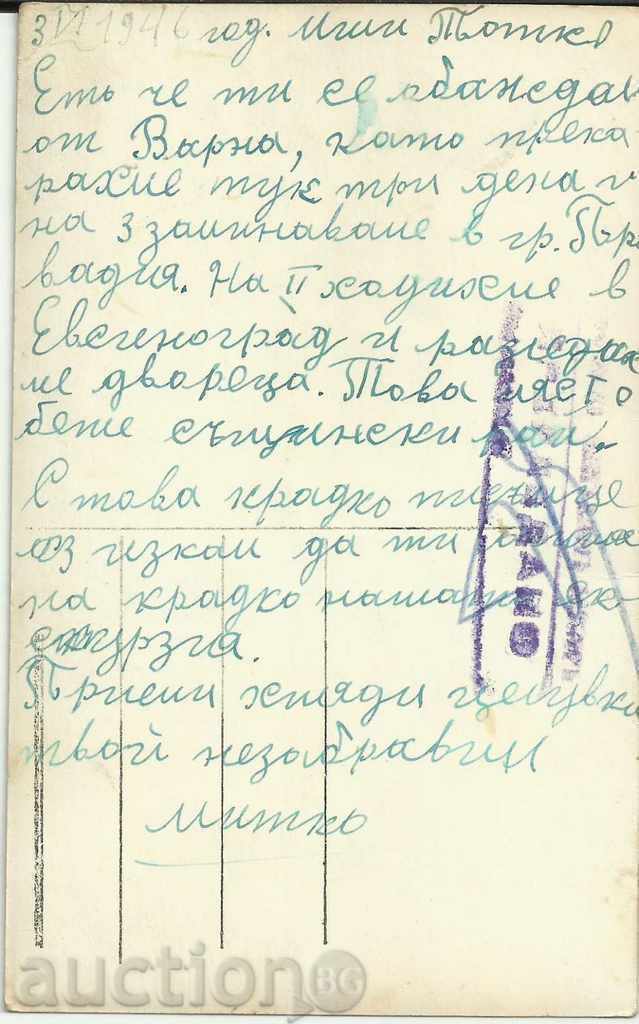 3 VI 1946 год. Мили Тотко
Еть че ти се обаждам
от Варна, като прека
рахме тук три дена и
на 3 заминаваме в гр. Про
вадия. На II ходихме в
Евсиноград и разгледах
ме двореца. Това место
беше същински рай.
С това крадко писмице
аз искам да ти
на крадко нашата ек
скурзия.
Приеми хиляди целувки
твой незабравим
Митко
ГЛЕДАНО
auction BG